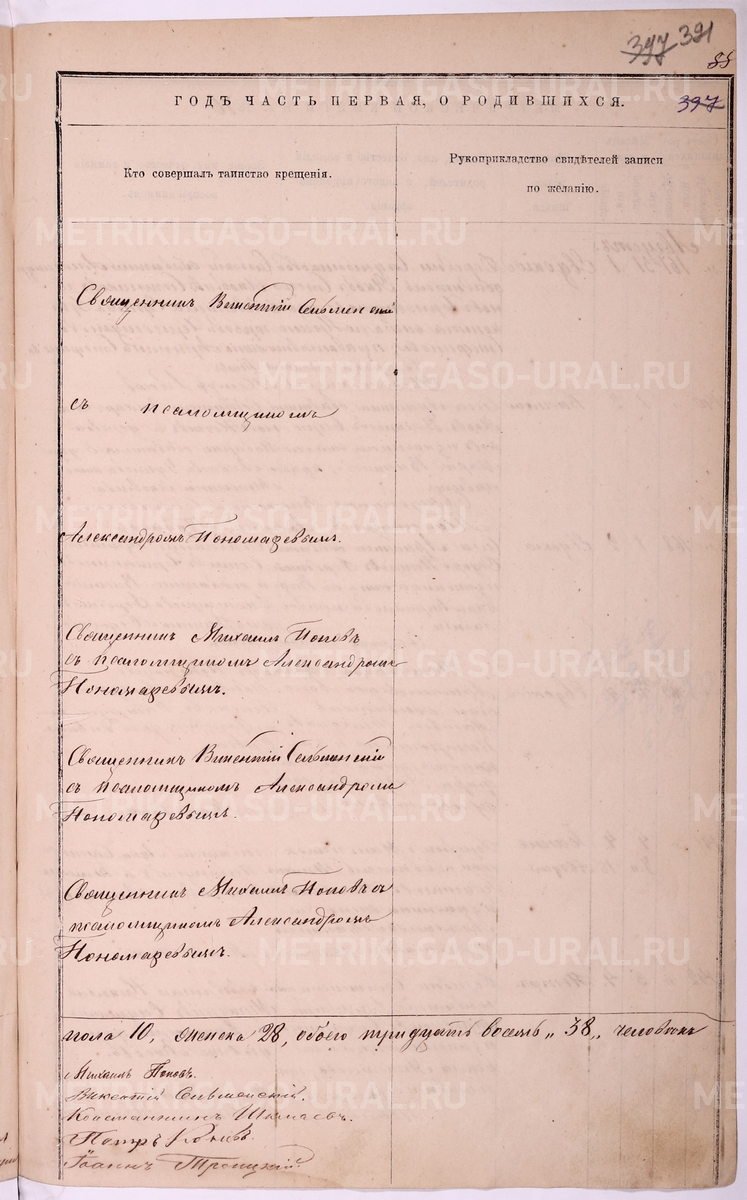 397 391
88
ГОДЪ ЧАСТЬ ПЕРВАЯ, О РОДИВШИХСЯ.
397
Кто совершалъ таинство крещенія.
Рукоприкладство свидѣтелей записи
по желанію.
Священникъ Викентій Сельменскій
съ псаломщикомъ
Александромъ Пономаревымъ.
Священникъ Михаилъ Поповъ
съ псаломщикомъ Александромъ
Пономаревымъ.
Священникъ Викентій
съ псаломщикомъ Александромъ
Пономаревымъ.
Священникъ Михаилъ Поповъ съ
псаломщикомъ Александромъ
Пономаревымъ.
пола 10, женска 28, обоего тридцать восемь „38„ человѣкъ
Михаилъ Поповъ.
Викентій Сельменскій.
Константинъ
Петръ
Іоаннъ Троицкій.
METRIKI.GASO-URAL.RU